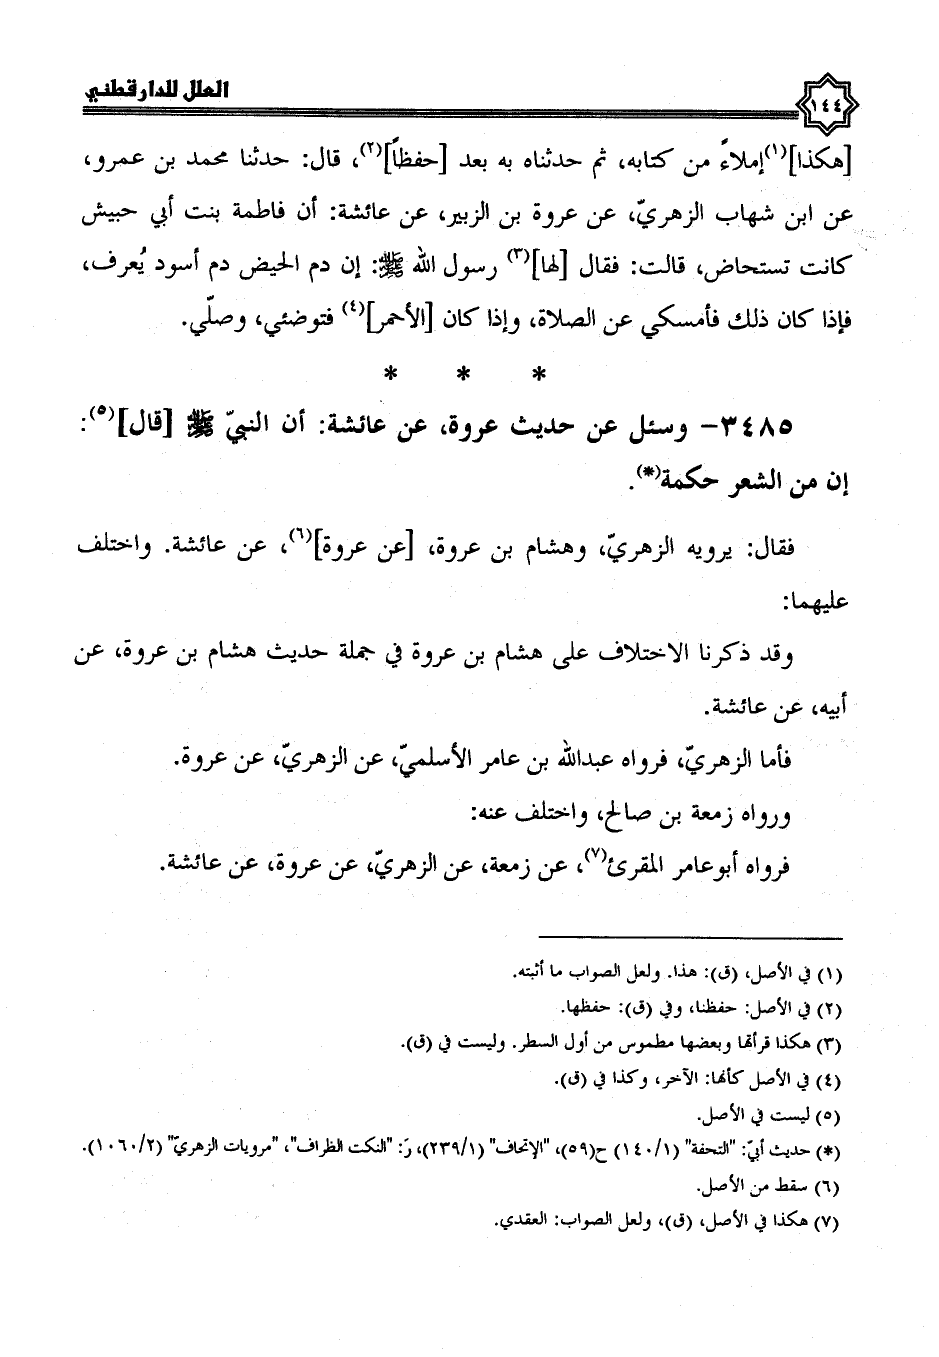 العلل للدارقطني
١٤٤
[هكذا](١) إملاءً من كتابه، ثم حدثناه به بعد [حفظاً](٢)، قال: حدثنا محمد بن عمرو،
عن ابن شهاب الزهريّ، عن عروة بن الزبير، عن عائشة: أن فاطمة بنت أبي حبيش
كانت تستحاض، قالت: فقال [لها](٣) رسول الله ﷺ: إن دم الحيض دم أسود يُعرف،
فإذا كان ذلك فأمسكي عن الصلاة، وإذا كان [الأحمر](٤) فتوضئي، وصلّي.
* * *
٣٤٨٥- وسئل عن حديث عروة، عن عائشة: أن النبيّ ﷺ [قال](٥):
إن من الشعر حكمة(*).
فقال: يرويه الزهريّ، وهشام بن عروة، [عن عروة](٦)، عن عائشة. واختلف
عليهما:
وقد ذكرنا الاختلاف على هشام بن عروة في جملة حديث هشام بن عروة، عن
أبيه، عن عائشة.
فأما الزهريّ، فرواه عبدالله بن عامر الأسلميّ، عن الزهريّ، عن عروة.
ورواه زمعة بن صالح، واختلف عنه:
فرواه أبوعامر المقرئ(٧)، عن زمعة، عن الزهريّ، عن عروة، عن عائشة.
(١) في الأصل، (ق): هذا. ولعل الصواب ما أثبته.
(٢) في الأصل: حفظنا، وفي (ق): حفظها.
(٣) هكذا قرأتها وبعضها مطموس من أول السطر. وليست في (ق).
(٤) في الأصل كأنها: الآخر، وكذا في (ق).
(٥) ليست في الأصل.
(*) حديث أبيّ: "التحفة" (١/١٤٠) ح(٥٩)، "الإتحاف" (١/٢٣٩)، رَ: "النكت الظراف"، "مرويات الزهريّ" (٢/١٠٦٠).
(٦) سقط من الأصل.
(٧) هكذا في الأصل، (ق)، ولعل الصواب: العقدي.